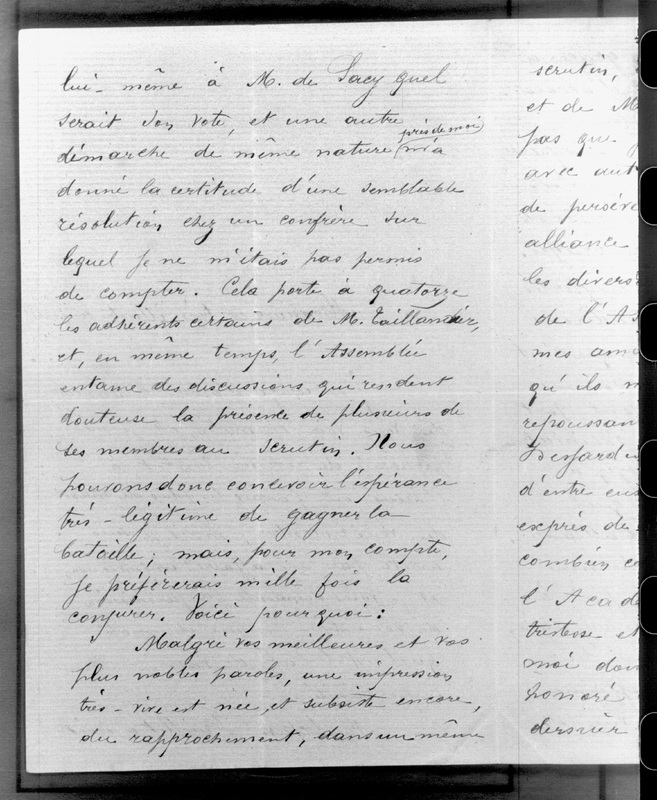 lui-même à M. de Sacy quel
serait son vote, et une autre
près de moi
démarche de même nature m'a
donné la certitude d'une semblable
résolution chez un confrère sur
lequel je ne m'étais pas permis
de compter. Cela porte à quatorze
les adhérents certains de M. Taillandier,
et, en même temps, l'Assemblée
entame des discussions qui rendent
douteuse la présence de plusieurs de
ses membres au scrutin. Nous
pouvons donc concevoir l'espérance
très-légitime de gagner la
bataille; mais, pour mon compte,
je préférerais mille fois la
conjurer. Voici pourquoi:
Malgré vos meilleures et vos
plus nobles paroles, une impression
très-vive est née, et subsiste encore,
du rapprochement, dans un même
scrutin,
et de M
pas que
avec aut
de persévé
alliance
les divers
de l'As
mes ami
qu'ils m
repoussan
d'entre eux
exprès de
combien ce
l'Acadé
tristesse et
moi don
honoré
dernier